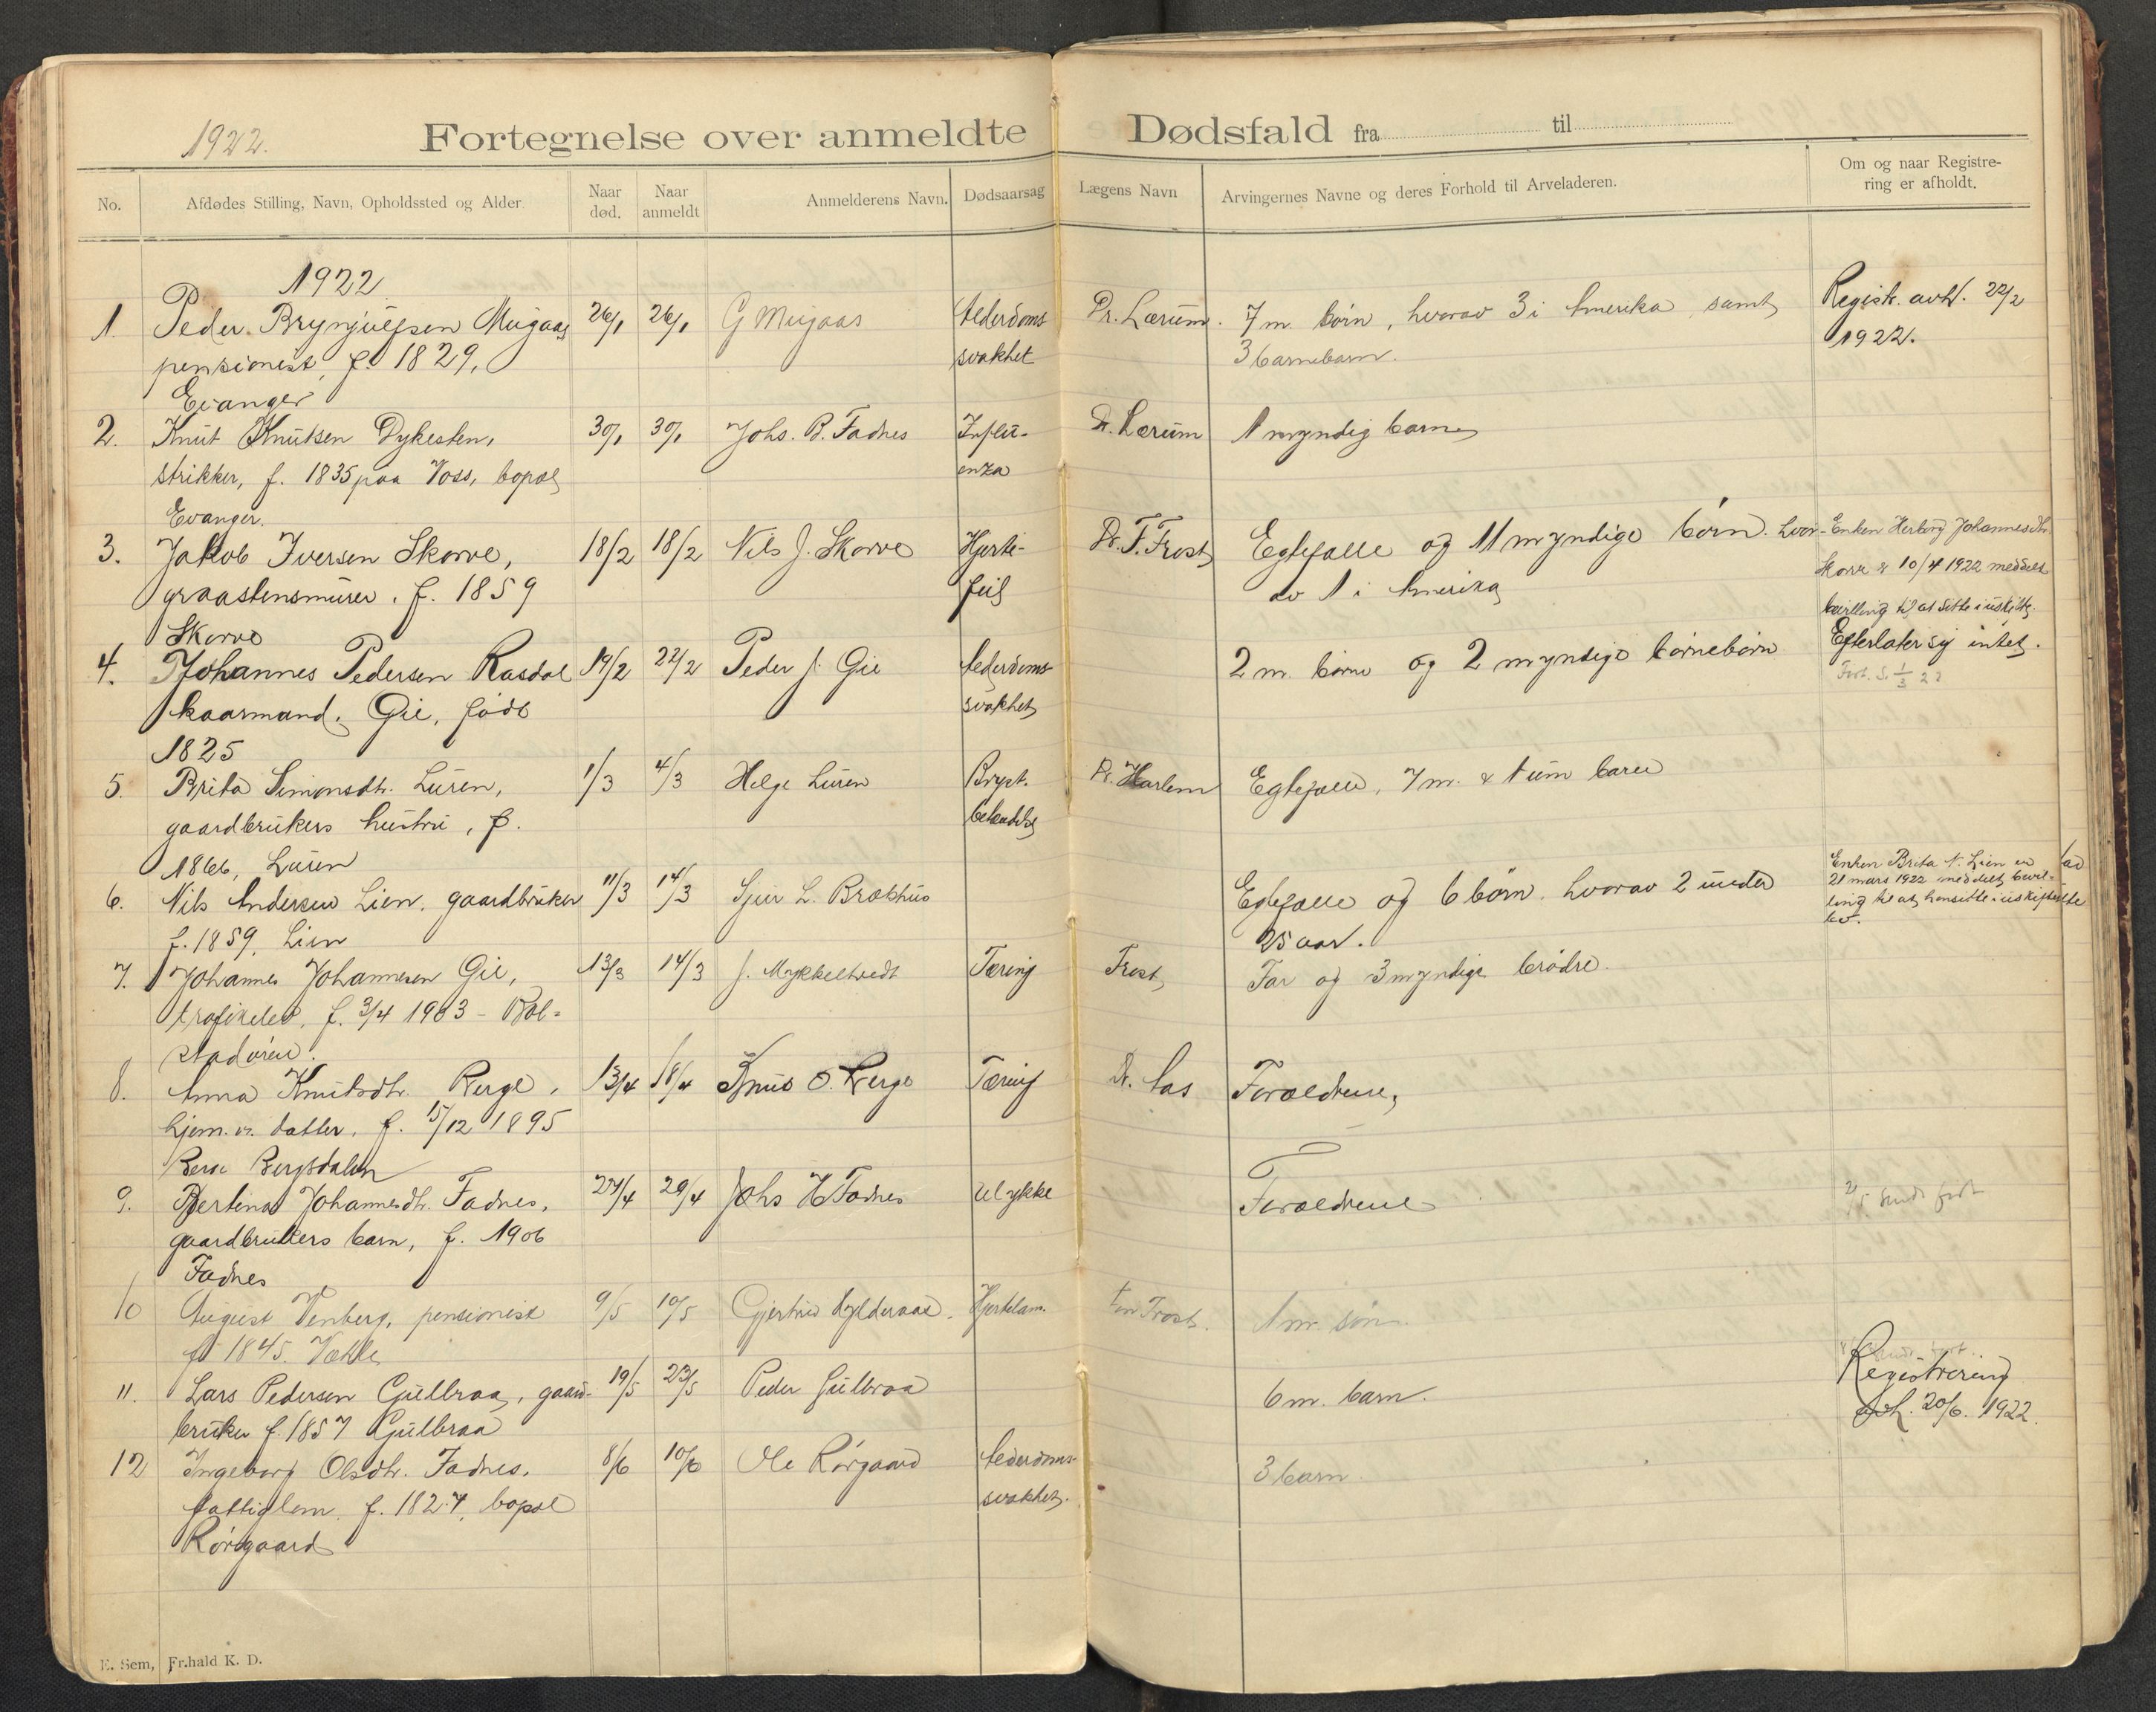 1922.
Fortegnelse over anmeldte Dødsfald fra til
No.
Afdødes Stilling, Navn, Opholdssted og Alder
Naar død.
Naar anmeldt
Anmelderens Navn.
Dødsaarsag
Lægens Navn
Arvingernes Navne og deres Forhold til Arveladeren.
Om og naar Registre-
ring er afholdt.
1922
1. Peder Brynjulfsen Mugaas 26/1 26/1 G Mugaas Alderdoms Dr. Lærum. 7 m. børn, hvorav 3 i Amerika samt Registr. avh. 22/2
pensionist, f. 1829, svakhet 3 barnebarn. 1922.
Evanger
2. Knut Knutsen Dykesten, 30/1 30/1 Johs. B. Fadnes Influ- Dr. Lærum 1 myndig barn
strikker, f. 1835 paa Voss, bopæl enza
Evanger.
3. Jakob Iversen Skorve, 18/2 18/2 Nils J. Skorve Hjerte- Dr. T. Frost Egtefælle og 11 myndige børn. hvor- Enken Herborg Johannesdtr.
graastensmurer. f. 1859 feil av 1 i Amerika Skorve er 10/4 1922 meddelt
Skorve bevilling til at sitte i uskifte.
4. Johannes Pedersen Rasdal 19/2 22/2 Peder J. Gie Alderdoms- 2 m. børn og 2 myndige børnebørn Efterlater sig intet.
kaarmand, Gie, født svakhet
1825
5. Brita Simonsdtr. Luren, 1/3 4/3 Helge Luren Bryst- Dr. Harlem Egtefælle, 7 m. & 1 um barn
gaardbrukers hustru, f. betændelse
1866, Luren
6. Nils Andersen Lien, gaardbruker 11/3 14/3 Sjur L. Brækhus Egtefælle og 6 børn. hvorav 2 under Enken Brita N. Lien er
f. 1859, Lien 25 aar. 21 mars 1922 meddelt bevil-
ling til at hensitte i uskiftet
bo.
7. Johannes Johannesen Gie, 13/3 14/3 J. Mykkeltvedt Tæring Frost Far og 3 myndige brødre.
trafikelev, f. 3/4 1903 - Bol-
stadøren.
8. Anna Knutsdtr. Berge, 13/4 18/4 Knut O. Berge Tæring Dr. Aas Forældrene
hjem. v. datter, f. 15/12 1895
Berge Bergsdalen
9. Bertena Johannesdtr. Fadnes, 27/4 29/4 Johs H Fadnes Ulykke Forældrene
gaardbrukers barn, f. 1906
Fadnes
10 August Venberg, pensionist 9/5 10/5 Gjertrud Hjertelam. Frost. 1 m. søn.
f. 1845.
11. Lars Pedersen Gulbraa, gaard- 19/5 23/5 Peder Gulbraa 6 m. barn. Registrering
bruker f. 1857 Gulbraa avh. 20/6. 1922.
12 Ingeborg Olsdtr. Fadnes, 8/6 10/6 Ole Rørgaard Alderdoms- 3 barn
fattiglem. f. 1827, bopæl svakhet.
Rørgaard
E. Sem, Fr.hald K. D.